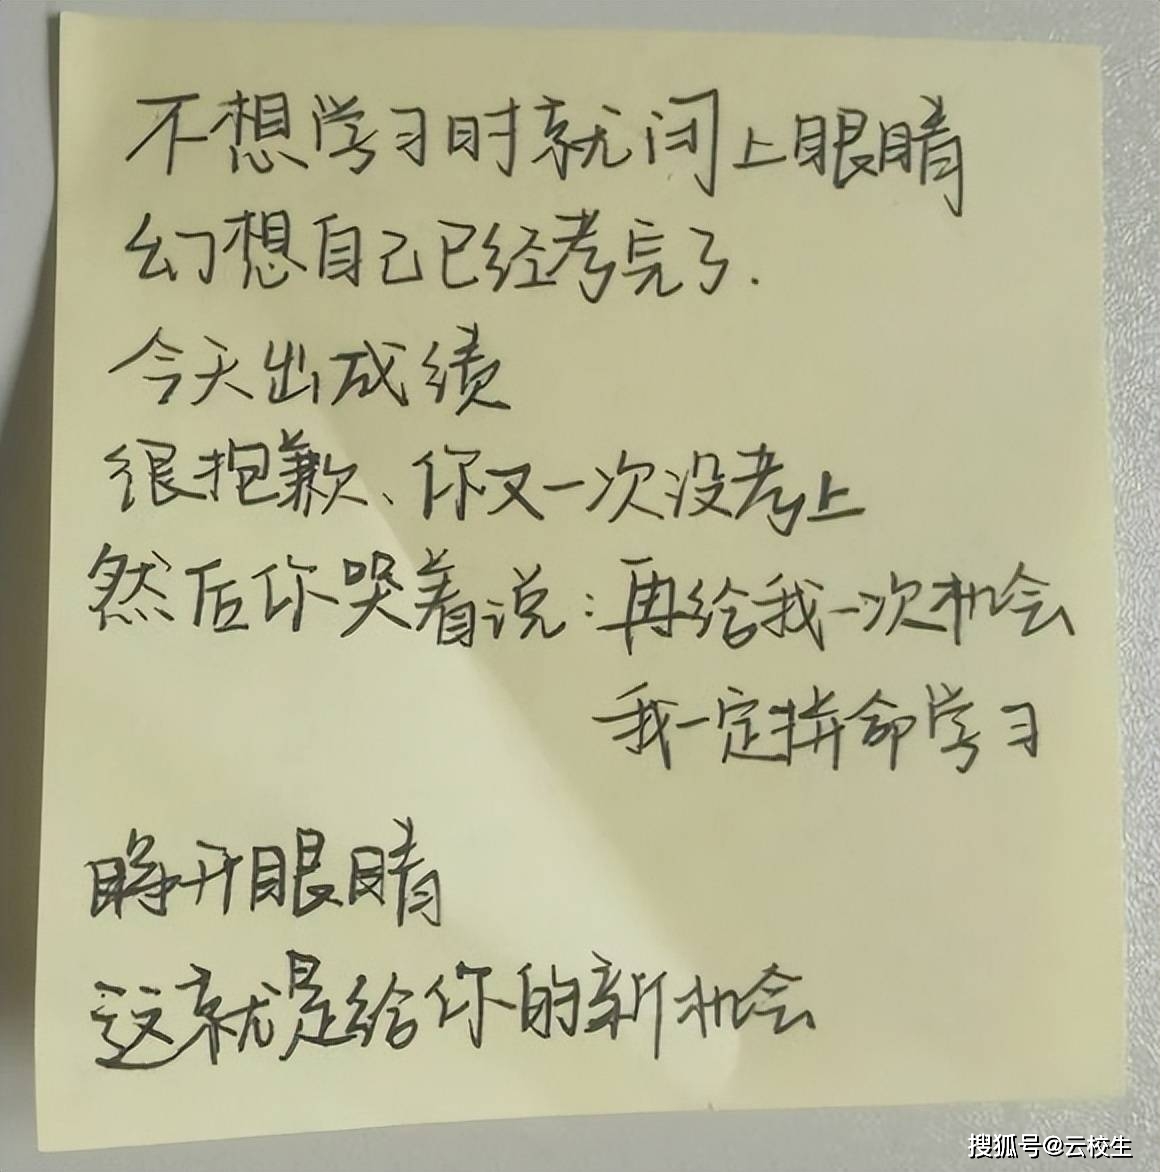 不想学习时就闭上眼睛
幻想自己已经考完了.
今天出成绩
很抱歉、你又一次没考上
然后你哭着说:再给我一次机会
我一定拼命学习
睁开眼睛
这就是给你的新机会
搜狐号@云校生